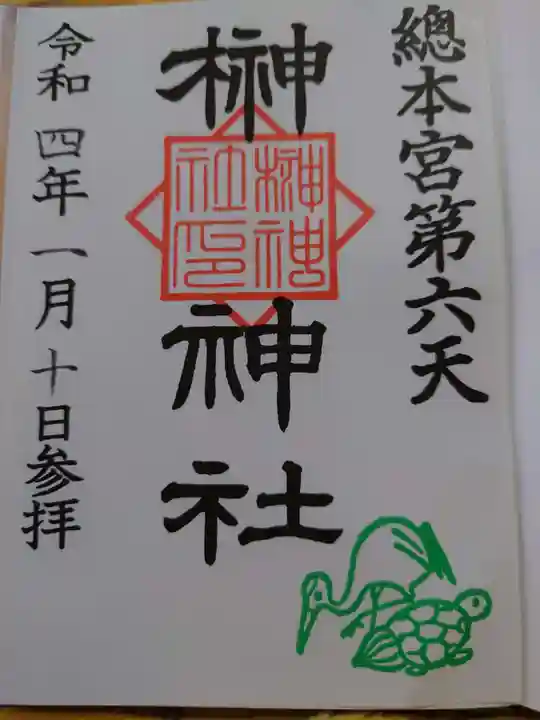 總本宮第六天
榊神社
榊神
社印
令和四年一月十日参拝